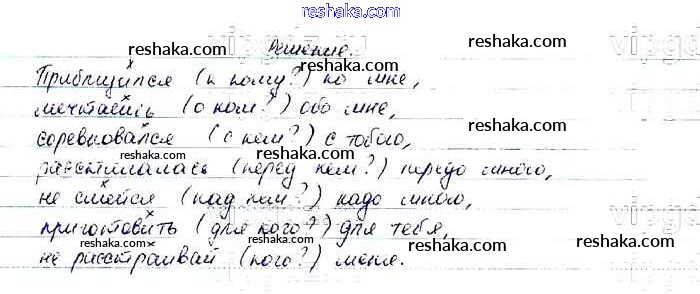 reshaka.com
Решение.
reshaka.com
reshaka.com
Приблизился (к кому?) ко мне,
мечтаешь (о ком?) обо мне,
соревновался (с кем?) с тобою,
reshaka.com
reshaka.com
расстилалась (перед кем?) передо мною,
не смейся (над кем?) надо мною,
reshaka.com
reshaka.com
приготовить (для кого?) для тебя,
reshaka.com
reshaka.com
не расстраивай (кого?) меня.
reshaka.com